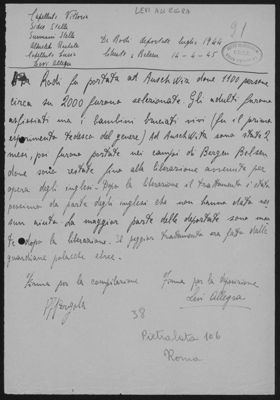 LEVI ALLEGRA
Capelluto Vittoria
Sidis Stella
Surmani Stella
Alhadeff Rachele
Capelluto Lucia
Levi Allegra
Da Rodi deportate luglio 1944
liberate a Belsen 14-4-45
91
Da Rodi fu portata ad Auschwitz dove 1100 persone
circa su 2000 furono selezionate. Gli adulti furono
asfissiati ma i bambini bruciati vivi (fu il primo
esperimento tedesco del genere) Ad Auschwitz sono state 2
mesi, poi furono portate nei campi di Bergen Belsen
dove sono restate fino alla liberazione avvenuta per
opera degli inglesi. Dopo la liberazione il trattamento è stato
pessimo da parte degli inglesi che non hanno avuto nes
sun aiuto. La maggior parte delle deportate sono mor
te dopo la liberazione. Il peggior trattamento era fatto dalle
guardiane polacche ebree.
Firma per la compilazione
Firma per la deposizione
Levi Allegra
38
Pietralata 106
Roma